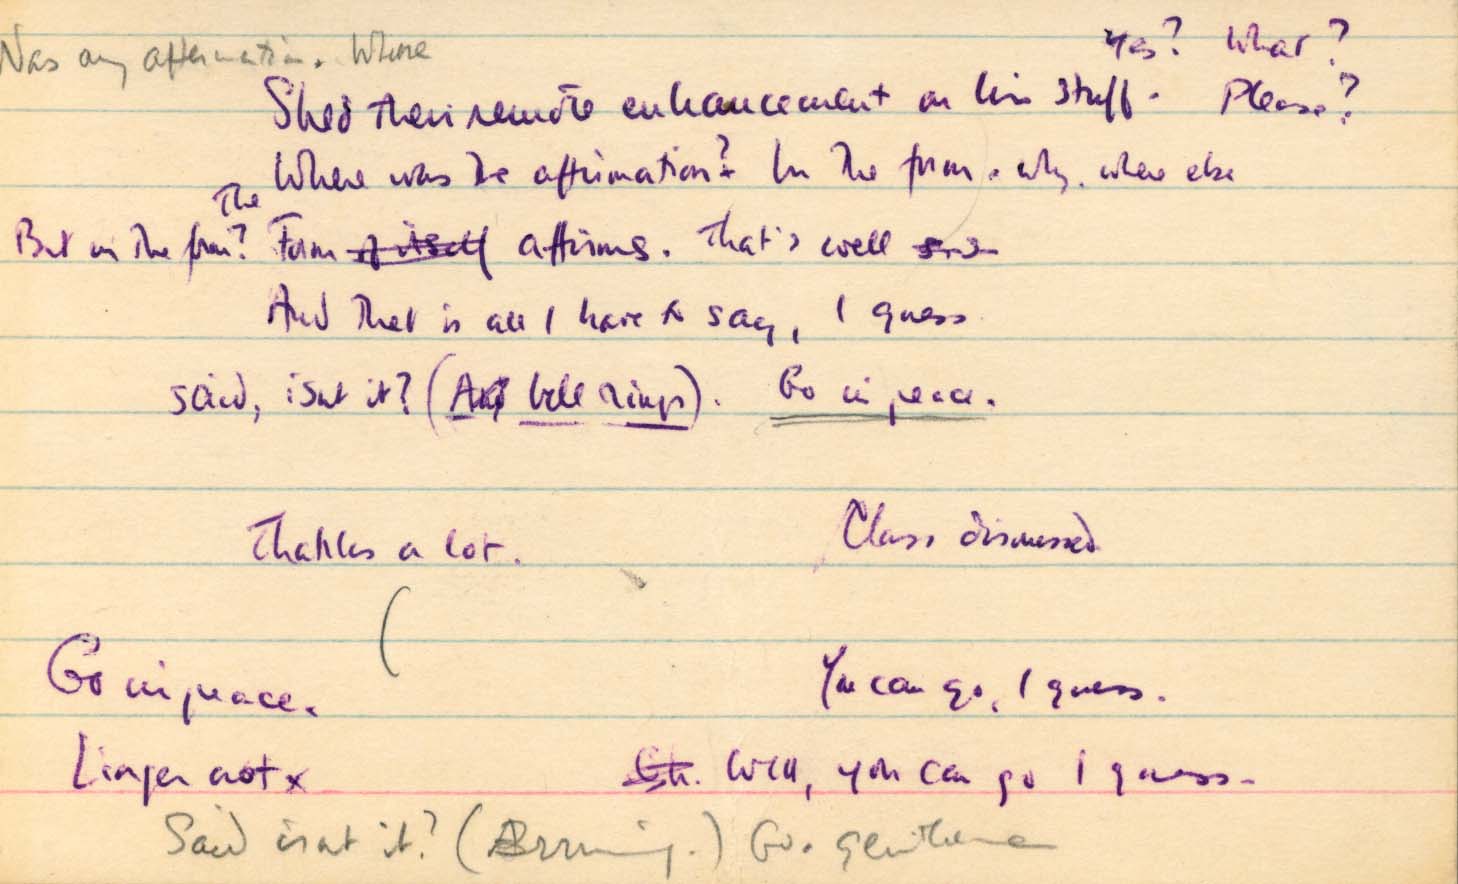 Was any affirmation. Where
Yes? What?
Shed their remote enhancement on his stuff. Please?
Where was the affirmation? In the form. why. where else
The
But in the form? Form of itself affirms. That's well said
And that is all I have to say, I guess.
said, isnt it? (A bell rings). Go in peace.
Thanks a lot. Class dismissed
(
Go in peace. You can go, I guess.
Linger not x
Well, you can go I guess.
Said isnt it? (Brrring.) Go. gentlemen